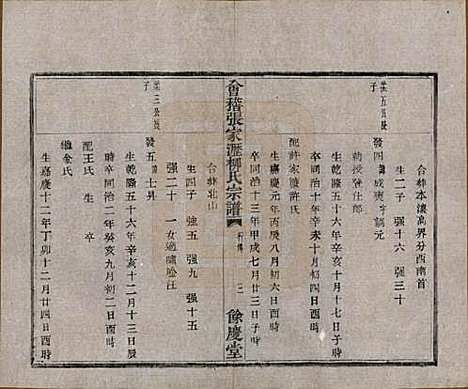 榮五公長子
合葬本濱高界分西南首
生二子 强十六 强三十
發四 諱成與 字調元
勅授登仕郎
生乾隆五十六年辛亥十月十七日子時
卒同治十年辛未十月初二日酉時
配許家陵許氏
生嘉慶元年丙辰八月初六日酉時
卒同治十三年甲戌七月廿三日子時
會稽張家瀝柳氏宗譜
餘慶堂
合葬北山
生四子 强五 强九 强十五
强二十 一女適嘯唫江
榮三公長子
發五 諱七昇
生乾隆五十六年辛亥十二月十三日辰
時卒同治二年癸亥九月初二日酉時
配王氏 生 卒
繼金氏
生嘉慶十二年丁卯十二月廿四日酉時